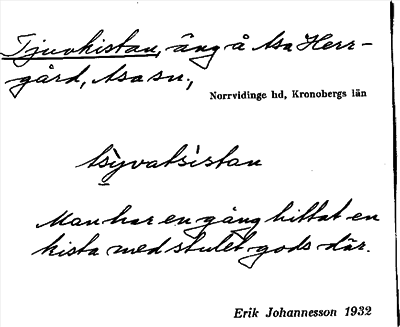 Tjuvkistan, äng å Asa Herr-
gård, Asa sn.,
Norrvidinge hd, Kronobergs län
tsy̱vatsìstan
Man har en gång hittat en
kista med stulet gods där.
Erik Johannesson 1932